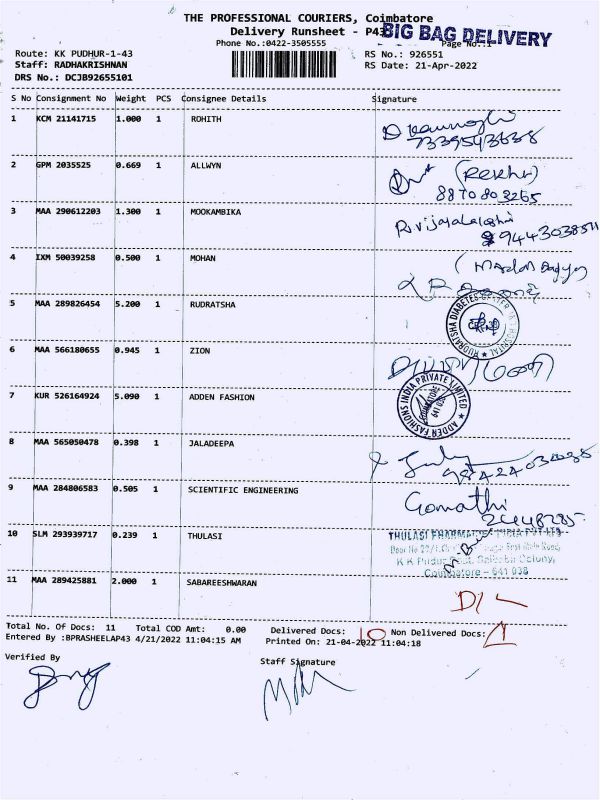 THE PROFESSIONAL COURIERS, Coimbatore
Delivery Runsheet - P43
BIG BAG DELIVERY
Phone No.:0422-3505555
Page No.:1
Route: KK PUDHUR-1-43
Staff: RADHAKRISHNAN
DRS No.: DCJB92655101
RS No.: 926551
RS Date: 21-Apr-2022
S No Consignment No Weight PCS Consignee Details Signature
1 KCM 21141715 1.000 1 ROHITH
7339543638
2 GPM 2035525 0.669 1 ALLWYN
(Rekha)
8870803265
3 MAA 290612203 1.300 1 MOOKAMBIKA
R.Vijayalakshmi
9443038511
4 IXM 50039258 0.500 1 MOHAN
5 MAA 289826454 5.200 1 RUDRATSHA
RUDRATSHA DIABETES CENTER HOSPITAL
6 MAA 566180655 0.945 1 ZION
7 KUR 526164924 5.090 1 ADDEN FASHION
ADDEN FASHIONS INDIA PRIVATE LIMITED
COIMBATORE
641 038
8 MAA 565050478 0.398 1 JALADEEPA
9 MAA 284806583 0.505 1 SCIENTIFIC ENGINEERING
Gomathi
10 SLM 293939717 0.239 1 THULASI
THULASI PHARMACIES INDIA PVT LTD
Door No
K K Pudur Post, Saibaba Colony,
Coimbatore - 641 038
11 MAA 289425881 2.000 1 SABAREESHWARAN
D/L
Total No. Of Docs: 11 Total COD Amt: 0.00 Delivered Docs: 10 Non Delivered Docs: 1
Entered By :BPRASHEELAP43 4/21/2022 11:04:15 AM Printed On: 21-04-2022 11:04:18
Verified By
Staff Signature